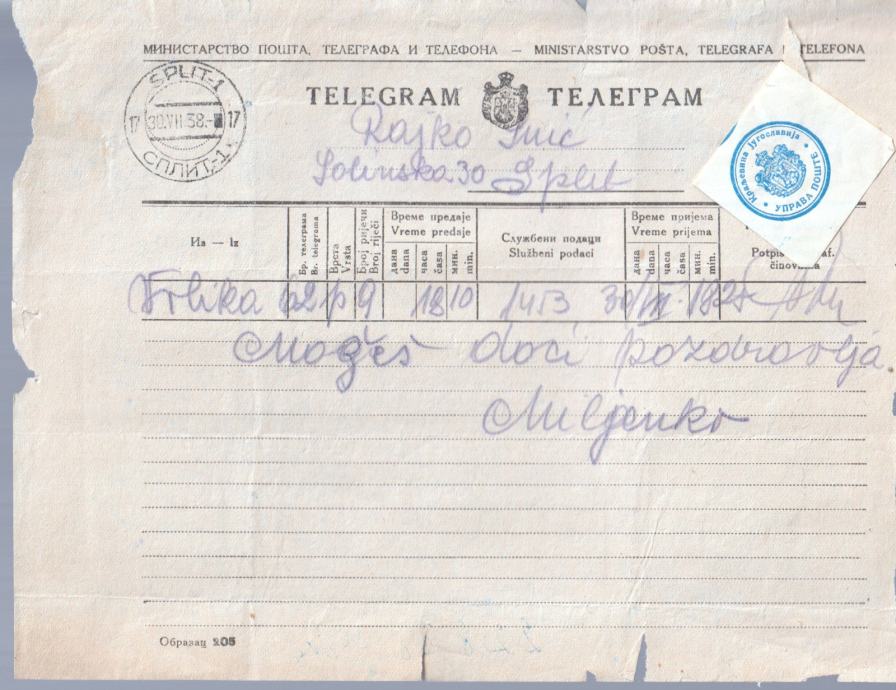 МИНИСТАРСТВО ПОШТА, ТЕЛЕГРАФА И ТЕЛЕФОНА — MINISTARSTVO POŠTA, TELEGRAFA I TELEFONA
SPLIT-1
17 30.VII.38.- 17
СПЛИТ-1
TELEGRAM ТЕЛЕГРАМ
Rajko
Solinska 30 Split
Краљевина Југославија
УПРАВА ПОШТЕ
Из — Iz
Бр. телеграма
Br. telegrama
Врста
Vrsta
Број ријечи
Broj riječi
Време предаје
Vreme predaje
дана
dana
часа
časa
мин.
min.
Службени подаци
Službeni podaci
Време пријема
Vreme prijema
дана
dana
часа
časa
мин.
min.
Potpis
činovnika
Vrlika 62 p 9 18 10 1453 30/VII 18 25
Možeš doci pozdravlja
Miljenko
Образац 205